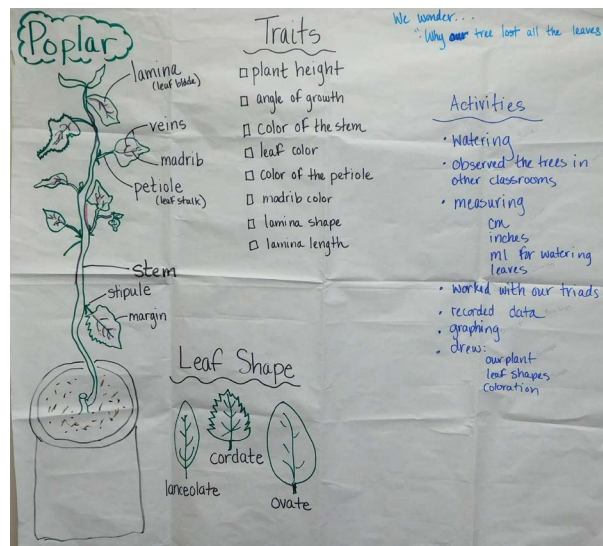 Poplar
lamina
(leaf blade)
veins
madrib
petiole
(leaf stalk)
stem
stipule
margin
Traits
□ plant height
□ angle of growth
□ color of the stem
□ leaf color
□ color of the petiole
□ madrib color
□ lamina shape
□ lamina length
Leaf Shape
lanceolate
cordate
ovate
We wonder...
"Why our tree lost all the leaves
Activities
• watering
• observed the trees in
other classrooms
• measuring
cm
inches
ml for watering
leaves
• worked with our triads
• recorded data
• graphing
• drew:
our plant
leaf shapes
coloration